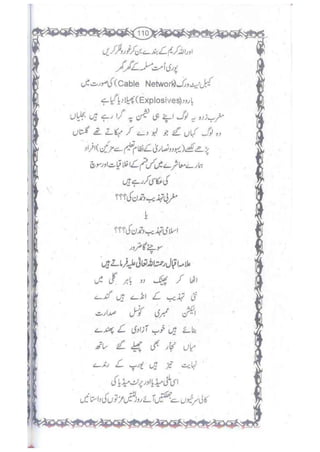 110
اور اللہ کریم کے بندے بن کر غور و فکر کریں
پوری اُمت مسلمہ کے گھر گھر
کیبل نیٹ ورک (Cable Network) کی صورت میں
بارود (Explosives) پھیلا دیا گیا ہے
مغرب زدہ یہ لوگ اپنے ہی نشیمن پہ گرا رہے ہیں بجلیاں
وہ لوگ کہاں گئے جو لہو دے کر مہکاتے تھے گلستاں
پڑھے لکھے (یہود و نصاریٰ کے نظام تعلیم سے مزین) افراد
ہمارے معاشرے میں کس قسم کے اخلاقیات اور سوچ
کی عکاسی کر رہے ہیں
مغربی تہذیب و تمدن کی؟؟؟
یا
اسلامی تہذیب و تمدن کی؟؟؟
سوچئے گا ضرور
علامہ اقبال رحمتہ اللہ تعالیٰ علیہ فرماتے ہیں
اٹھا کر پھینک دو باہر گلی میں
نئی تہذیب کے انڈے ہیں گندے
الیکشن ممبری کونسل صدارت
بنائے ہیں خوب آزادی کے پھندے
میاں نجار بھی چھیلے گئے ساتھ
نہایت تیز ہیں یورپ کے رندے
اسی ملٹی میڈیا اور پرنٹ میڈیا کی
کالی سرخیوں سے جھلکتیں آئے روز لٹتیں عزتوں کی داستانیں